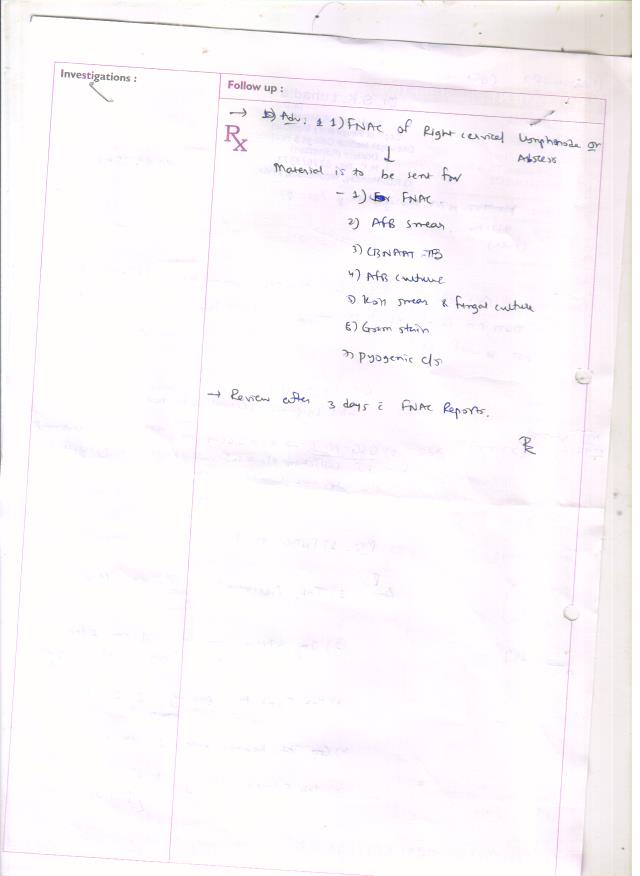 Investigations :
Follow up :
→ Adv: 1) FNAC of Right cervical Lymphnode or
Abscess
Rx
↓
Material is to be sent for
- 1) FNAC
2) AFB smear
3) CBNAAT -TB
4) AFB culture
5) KOH smear & fungal culture
6) Gram stain
7) Pyogenic C/s
→ Review after 3 days c̄ FNAC Reports.